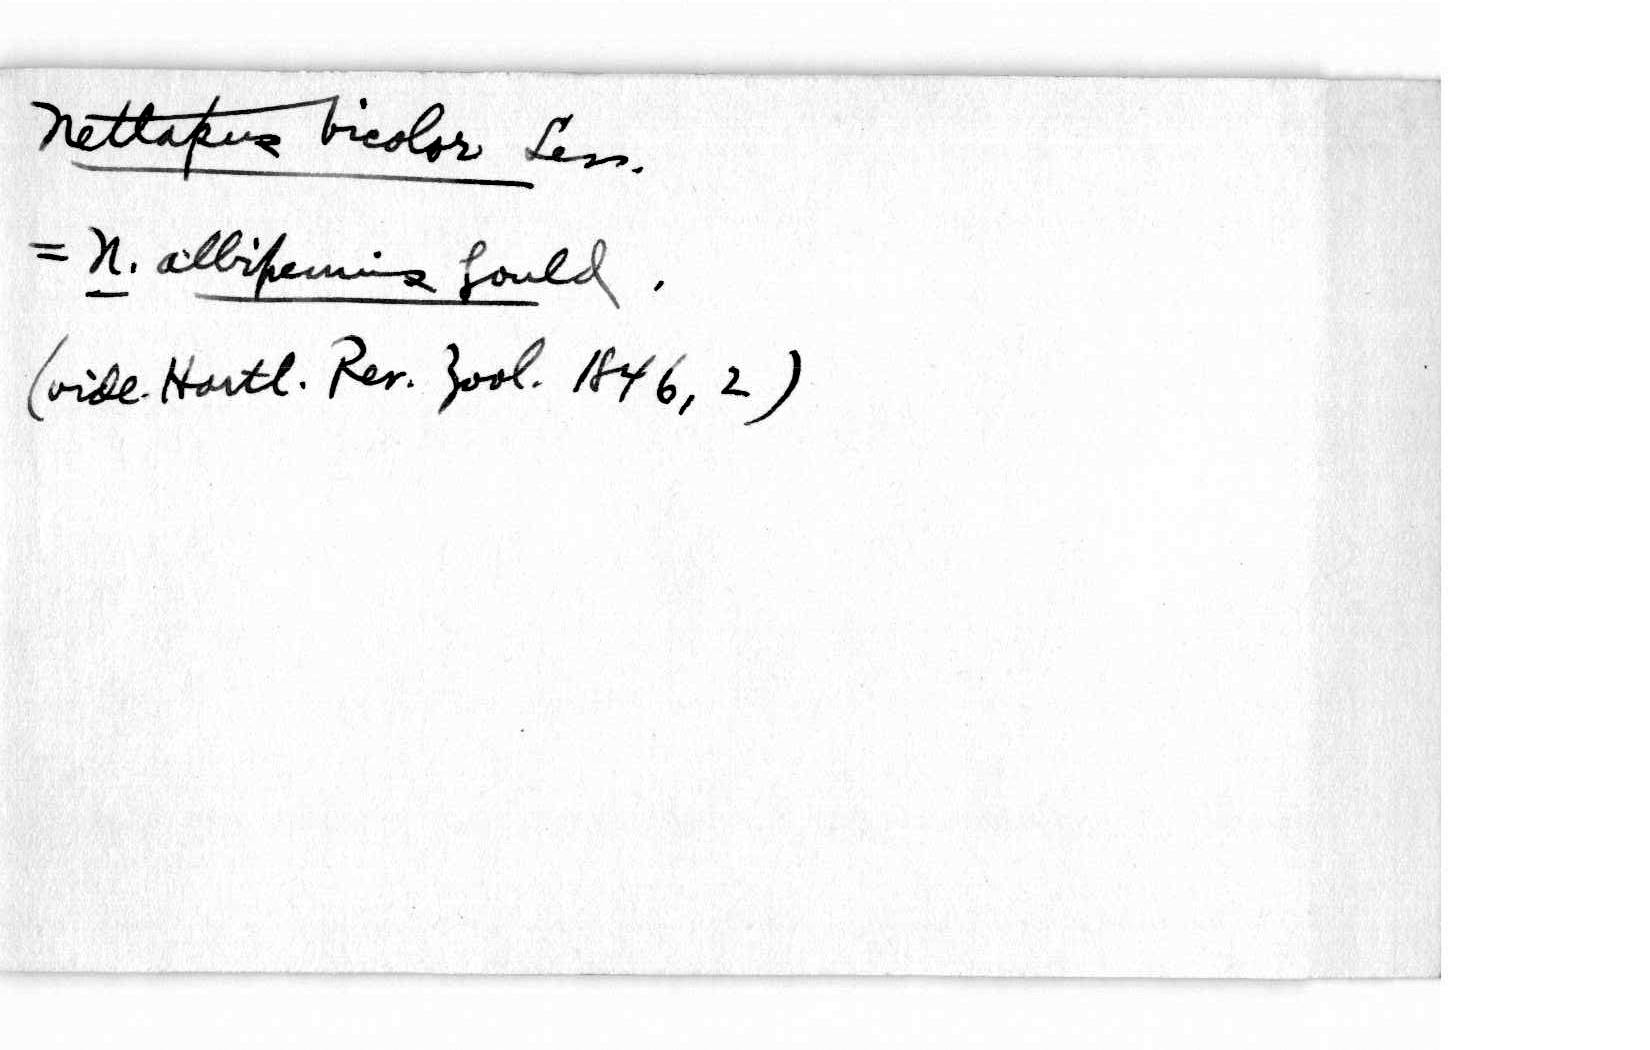 Nettapus bicolor Less.
= N. albipennis Gould.
(vide Hartl. Rev. Zool. 1846, 2)